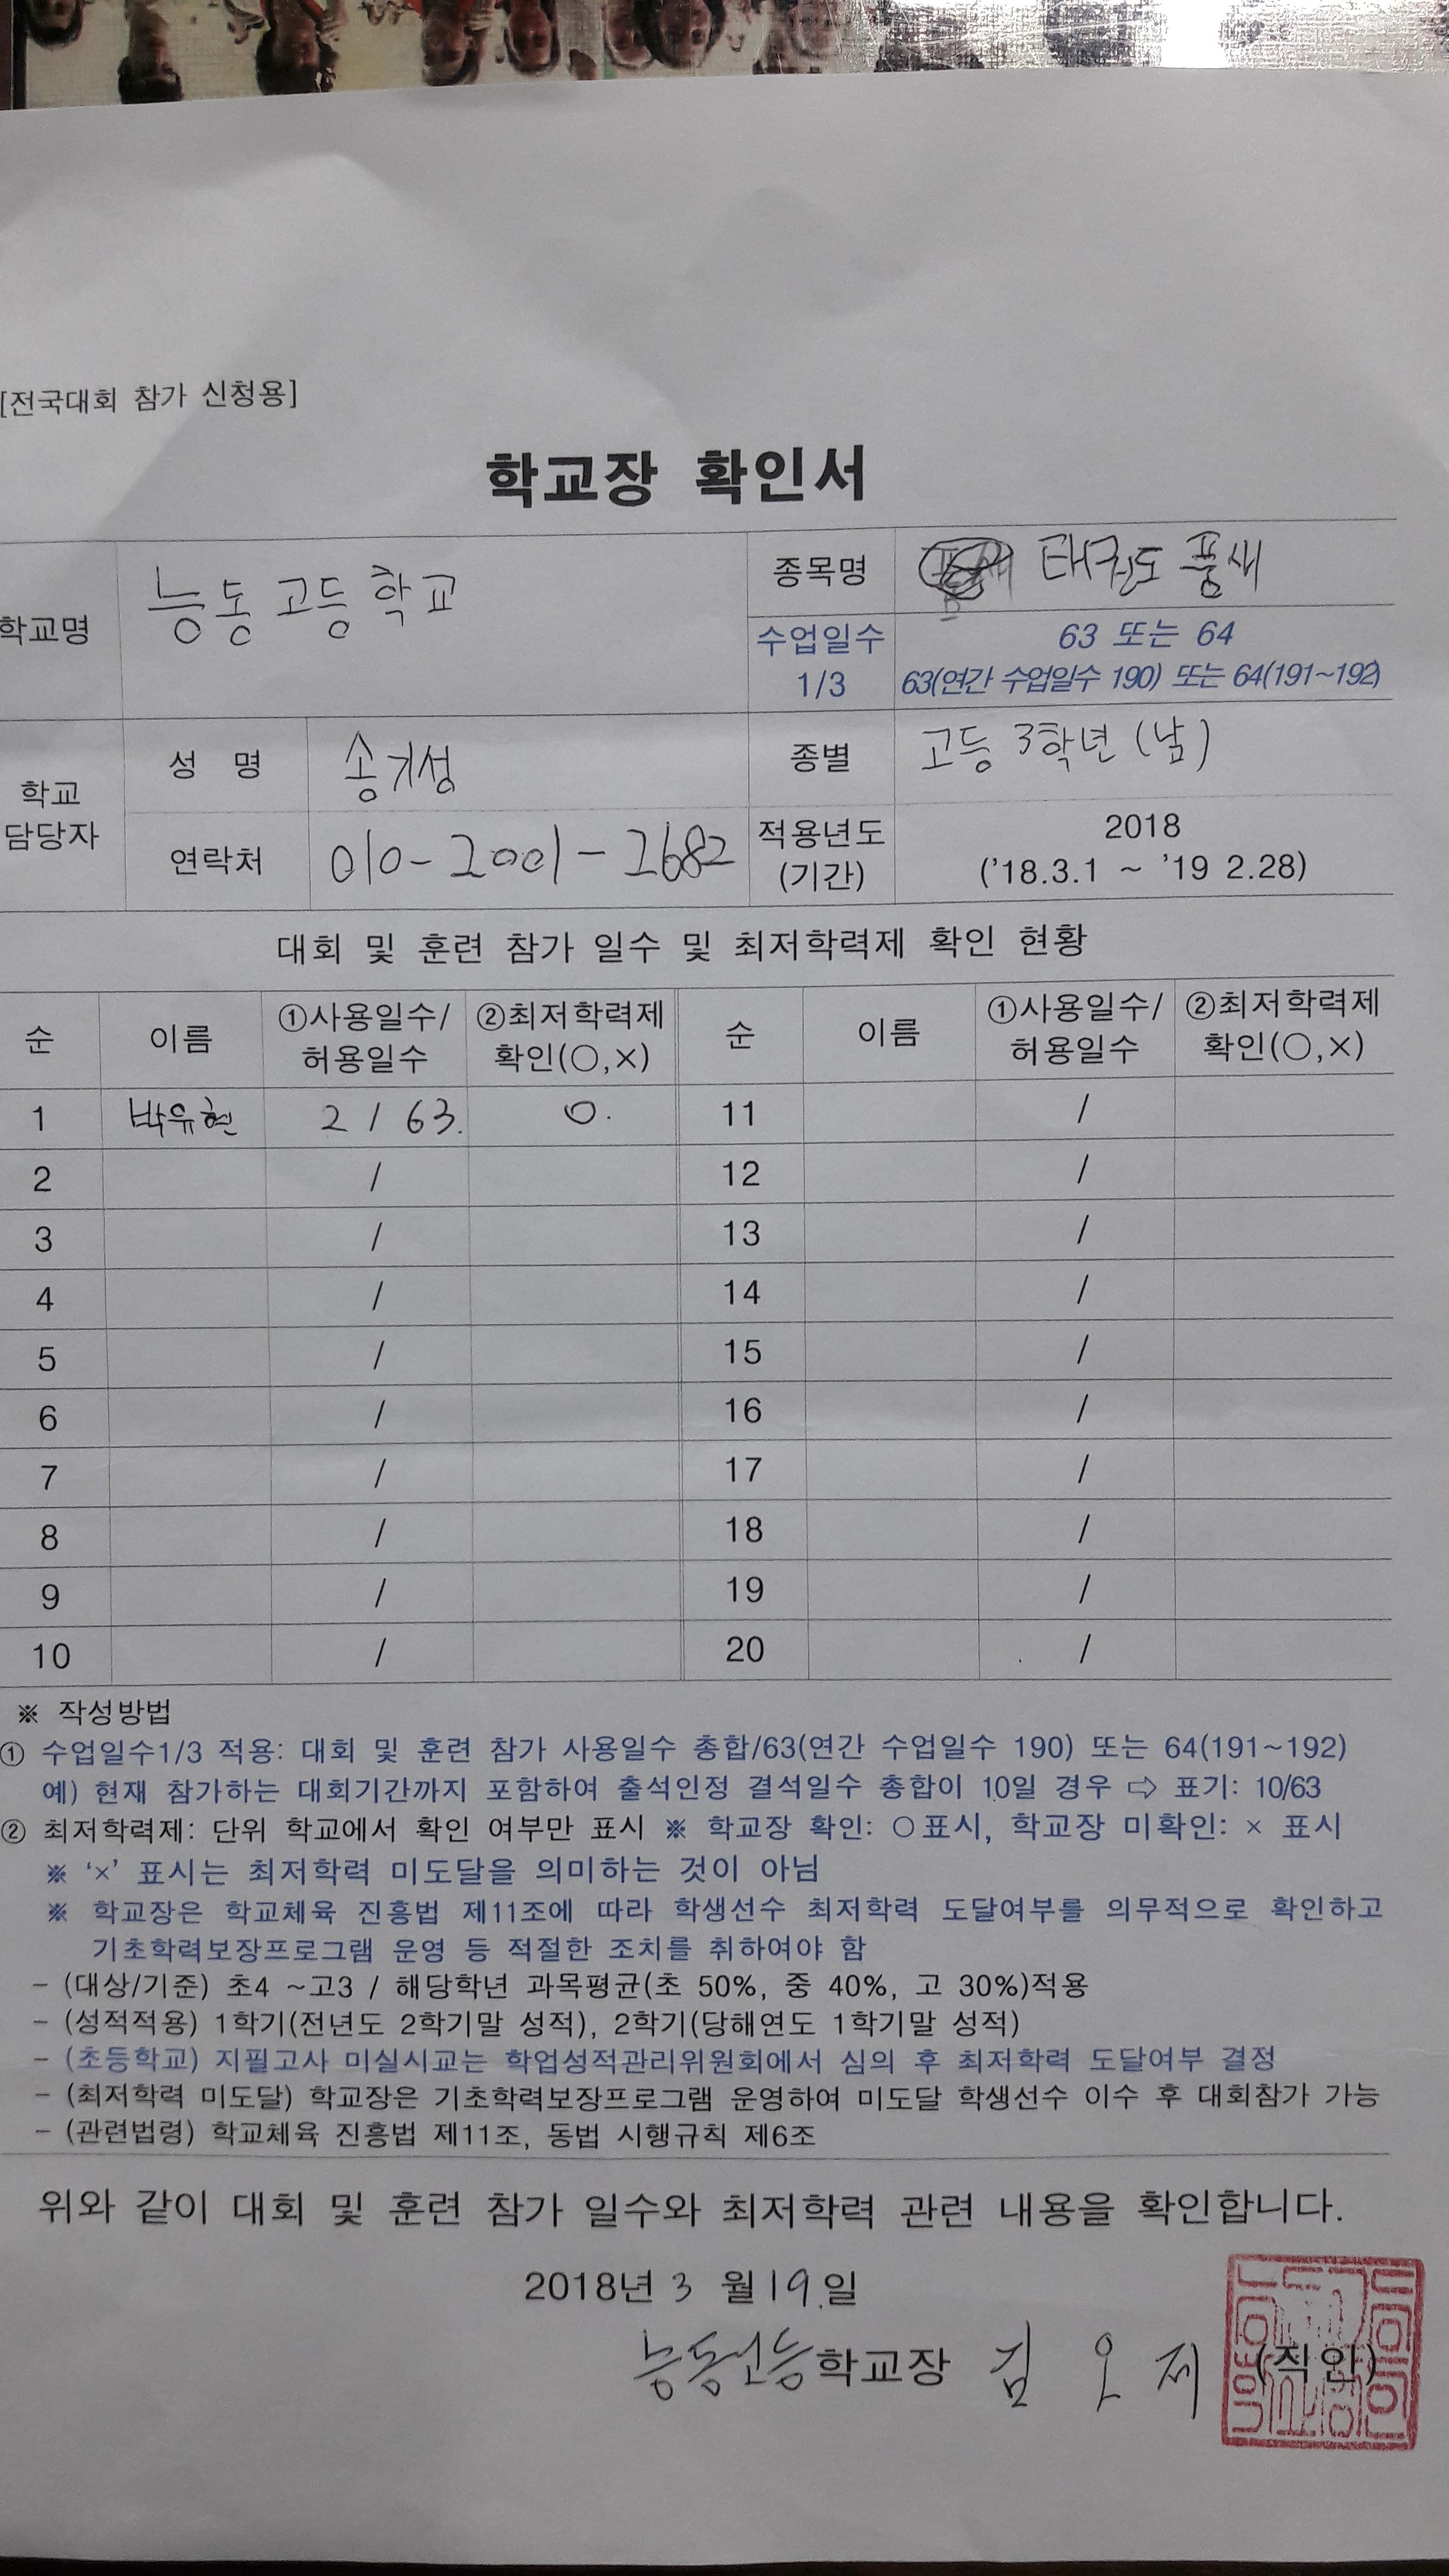 [전국대회 참가 신청용]
학교장 확인서
학교명 능동고등학교 종목명 태권도 품새
수업일수 1/3 63 또는 64
63(연간 수업일수 190) 또는 64(191~192)
학교 담당자 성 명 송기성 종별 고등 3학년 (남)
연락처 010-2001-2682 적용년도 (기간) 2018
('18.3.1 ~ '19 2.28)
대회 및 훈련 참가 일수 및 최저학력제 확인 현황
순 이름 ①사용일수/허용일수 ②최저학력제 확인(○,×) 순 이름 ①사용일수/허용일수 ②최저학력제 확인(○,×)
1 박유현 2 / 63. ○. 11 /
2 / 12 /
3 / 13 /
4 / 14 /
5 / 15 /
6 / 16 /
7 / 17 /
8 / 18 /
9 / 19 /
10 / 20 /
※ 작성방법
① 수업일수1/3 적용: 대회 및 훈련 참가 사용일수 총합/63(연간 수업일수 190) 또는 64(191~192)
예) 현재 참가하는 대회기간까지 포함하여 출석인정 결석일수 총합이 10일 경우 ⇨ 표기: 10/63
② 최저학력제: 단위 학교에서 확인 여부만 표시 ※ 학교장 확인: ○표시, 학교장 미확인: × 표시
※ '×' 표시는 최저학력 미도달을 의미하는 것이 아님
※ 학교장은 학교체육 진흥법 제11조에 따라 학생선수 최저학력 도달여부를 의무적으로 확인하고
기초학력보장프로그램 운영 등 적절한 조치를 취하여야 함
- (대상/기준) 초4 ~고3 / 해당학년 과목평균(초 50%, 중 40%, 고 30%)적용
- (성적적용) 1학기(전년도 2학기말 성적), 2학기(당해연도 1학기말 성적)
- (초등학교) 지필고사 미실시교는 학업성적관리위원회에서 심의 후 최저학력 도달여부 결정
- (최저학력 미도달) 학교장은 기초학력보장프로그램 운영하여 미도달 학생선수 이수 후 대회참가 가능
- (관련법령) 학교체육 진흥법 제11조, 동법 시행규칙 제6조
위와 같이 대회 및 훈련 참가 일수와 최저학력 관련 내용을 확인합니다.
2018년 3 월 19.일
능동고등학교장 김 오 제 (직인)